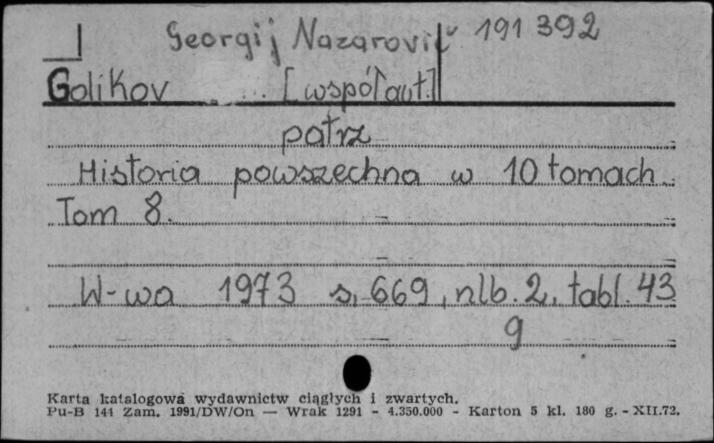 Georgij Nazarovič 191 392
Golikov [współaut.]
patrz
Historia powszechna w 10 tomach.
Tom 8.
W-wa 1973 s. 669, nlb. 2, tabl. 43
9
Karta katalogowa wydawnictw ciągłych i zwartych.
Pu-B 144 Zam. 1991/DW/On — Wrak 1291 - 4.350.000 - Karton 5 kl. 180 g. - XII.72.